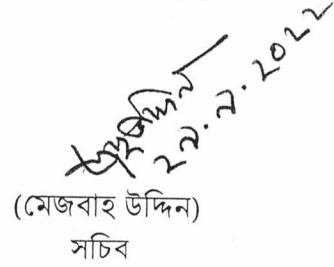 ২৯.৯.২০২২
(মেজবাহ উদ্দিন)
সচিব